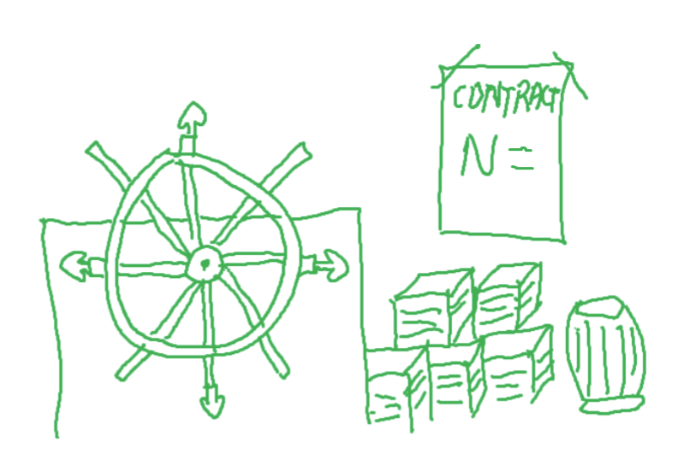 CONTRACT
N =